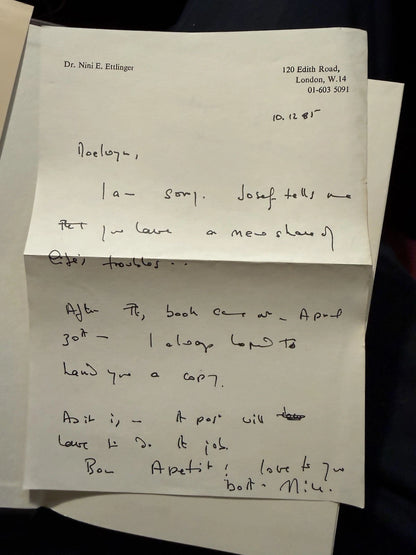 Dr. Nini E. Ettlinger
120 Edith Road,
London, W.14
01-603 5091
10.12.85
Maelwyn,
I am sorry. Josef tells me
that you have a new share of
life's troubles...
After the book came on April
30th — I always hoped to
hand you a copy.
As it is, — the post will
have to do the job.
Bon Apetit! love to you
both. Nini.